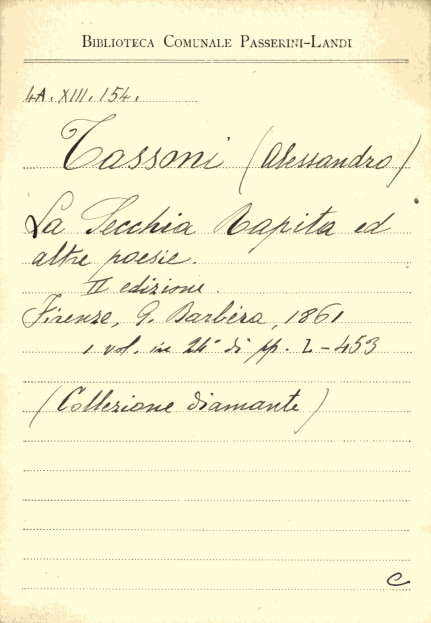 BIBLIOTECA COMUNALE PASSERINI-LANDI
4A. XIII. 154.
Tassoni (Alessandro)
La Secchia Rapita ed
altre poesie.
II edizione.
Firenze, G. Barbèra, 1861
1 vol. in 24° di pp. L-453
(Collezione diamante)
C